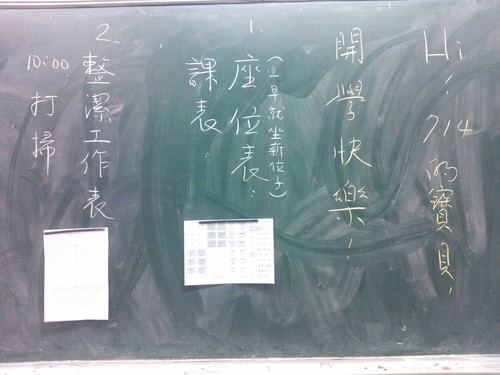 Hi! 714的寶貝,
開學快樂!
1.
(一早就坐新位子)
座位表:
課表:
2.
整潔工作表
10:00 打掃